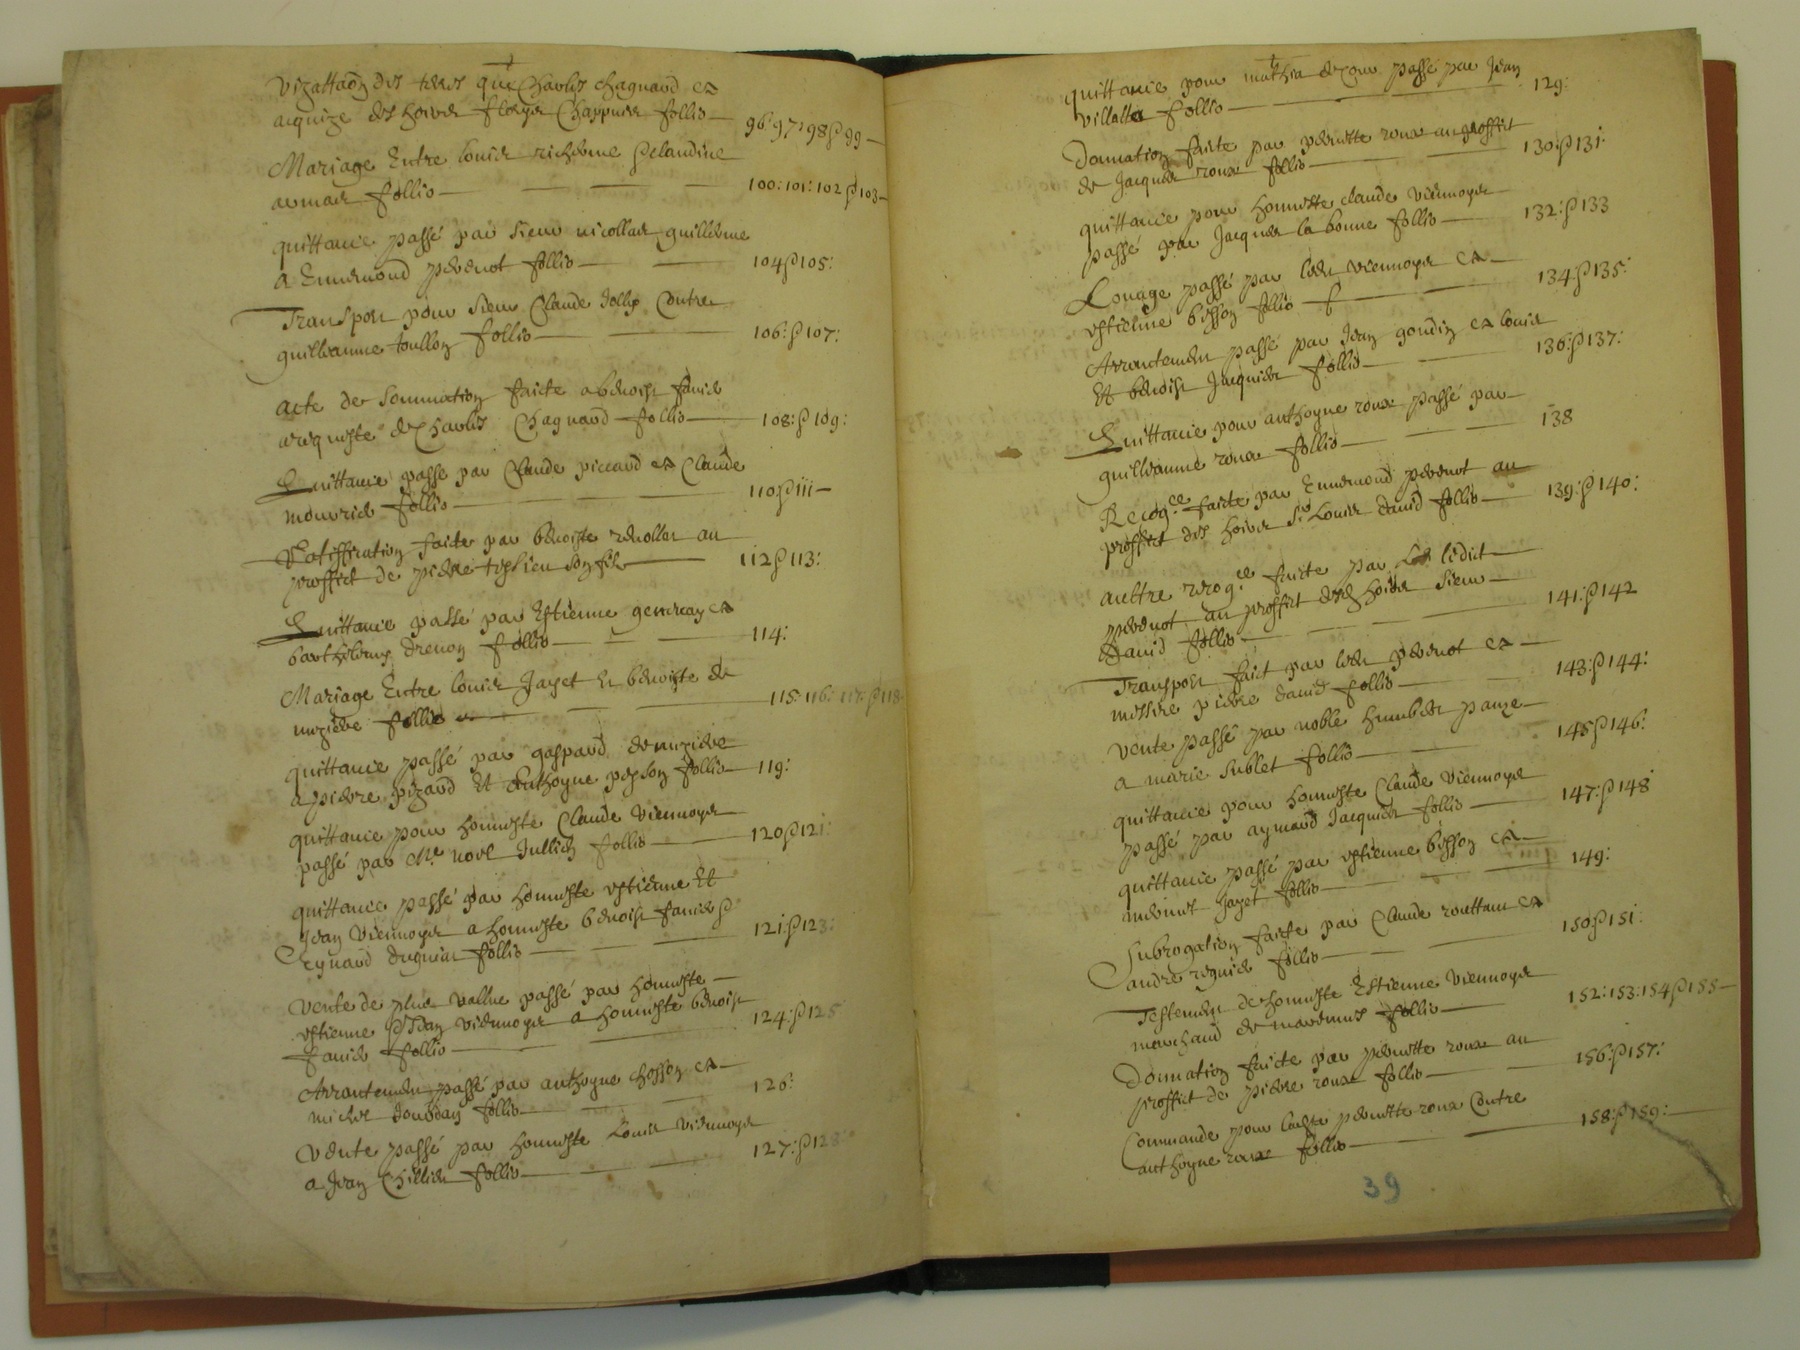 des terres que Charles Chagnard
acquize des hoirs Chappuis follio 96: 97: 98 & 99
Mariage Entre Louis &
follio 100: 101: 102 & 103
quittance passé par sieur nicollas guillerme
a Ennemond follio 104 & 105:
Transport pour sieur Claude Jollÿ Contre
guilleaume toullon follio 106: & 107:
acte de sommation faicte a benoist fauier
a requeste de Charles Chagnard follio 108: & 109:
Quittance passe par Claude piccard et Claude
follio 110 & 111
Ratiffication faicte par benoiste au
proffict de pierre son filz 112 & 113:
Quittance passé par Estienne et
barthelemy follio 114:
Mariage Entre louis Jayet Et benoiste de
muziere follio 115: 116: 117: & 118
quittance passé par gaspard de muziere
a pierre pizard Et Anthoyne follio 119:
quittance pour honneste Claude Viennoys
passé par Me noel Jullien follio 120 & 121:
quittance passé par honneste estienne Et
Jean Viennoys a honneste benoist fauier &
follio 121: & 123:
Vente de plus vallue passé par honneste
estienne & Jean viennoys a honneste benoist
fauier follio 124: & 125
Arrantement passé par anthoyne et
michel follio 126:
Vente passé par honneste Louis viennoys
a Jean follio 127: & 128
quittance pour passé par Jean
villatta follio 129:
Donnation faicte par pernette roux au proffict
de Jacques roux follio 130: & 131:
quittance pour honneste claude viennoys
passé par Jacques la bonne follio 132: & 133
Louage passé par viennoys et
estienne besson follio 134 & 135:
Arrantement passé par Jean goudin et louis
Et benoist Jacquier follio 136: & 137:
Quittance pour anthoyne roux passé par
guilleaume roux follio 138
Recogce faicte par Ennemond au
proffict des hoirs sr Louis dauid follio 139: & 140:
aultre recogce faicte par ledict
au proffict desd hoirs sieur
Dauid follio 141: & 142
Transport faict par et
messire pierre dauid follio 143: & 144:
vente passé par noble humbert
a marie sublet follio 145 & 146:
quittance pour honneste Claude viennoys
passé par aymard Jacquier follio 147: & 148
quittance passé par estienne besson et
Jayet follio 149:
Subrogation faicte par Claude et
andre follio 150 & 151:
Testement de honneste Estienne viennoys
marchand de follio 152: 153: 154 & 155
Donnation faicte par pernette roux au
proffict de pierre roux follio 156: & 157:
Commande pour pernette roux Contre
anthoyne roux follio 158: & 159:
39